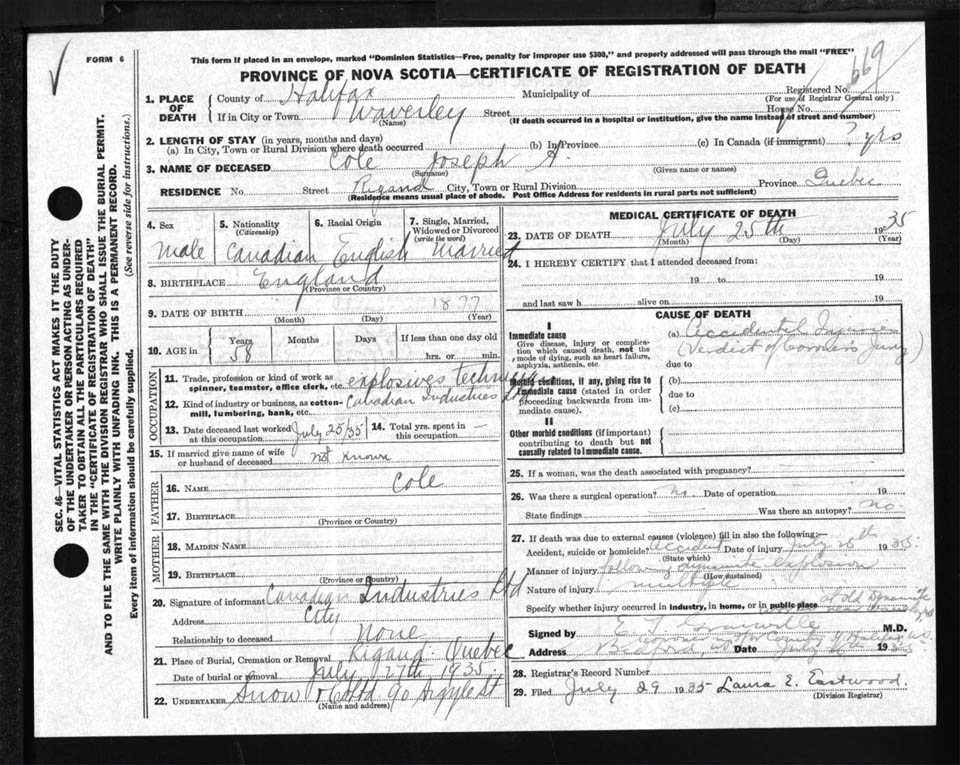 FORM 6
This form if placed in an envelope, marked "Dominion Statistics—Free, penalty for improper use $300," and properly addressed will pass through the mail "FREE"
PROVINCE OF NOVA SCOTIA—CERTIFICATE OF REGISTRATION OF DEATH
669
SEC. 46—VITAL STATISTICS ACT MAKES IT THE DUTY
OF THE UNDERTAKER OR PERSON ACTING AS UNDER-
TAKER TO OBTAIN ALL THE PARTICULARS REQUIRED
IN THE "CERTIFICATE OF REGISTRATION OF DEATH"
AND TO FILE THE SAME WITH THE DIVISION REGISTRAR WHO SHALL ISSUE THE BURIAL PERMIT.
WRITE PLAINLY WITH UNFADING INK. THIS IS A PERMANENT RECORD.
Every item of information should be carefully supplied. (See reverse side for instructions.)
1. PLACE OF DEATH County of Halifax Municipality of Registered No.
(For use of Registrar General only)
If in City or Town Waverley Street House No.
(Name) (If death occurred in a hospital or institution, give the name instead of street and number)
2. LENGTH OF STAY (in years, months and days)
(a) In City, Town or Rural Division where death occurred (b) In Province (c) In Canada (if immigrant) ? yrs
3. NAME OF DECEASED Cole Joseph A.
(Surname) (Given name or names)
RESIDENCE No. Street Rigaud City, Town or Rural Division Province Quebec
(Residence means usual place of abode. Post Office Address for residents in rural parts not sufficient)
4. Sex 5. Nationality (Citizenship) 6. Racial Origin 7. Single, Married, Widowed or Divorced (write the word)
Male Canadian English Married
8. BIRTHPLACE England
(Province or Country)
9. DATE OF BIRTH 1877
(Month) (Day)
10. AGE in Years Months Days If less than one day old
58 hrs. or min.
OCCUPATION
11. Trade, profession or kind of work as spinner, teamster, office clerk, etc. explosives
12. Kind of industry or business, as cotton-mill, lumbering, bank, etc. Canadian Industries
13. Date deceased last worked at this occupation July 25/35 14. Total yrs. spent in this occupation —
15. If married give name of wife or husband of deceased not known
FATHER
16. NAME Cole
17. BIRTHPLACE
(Province or Country)
MOTHER
18. MAIDEN NAME
19. BIRTHPLACE
(Province or Country)
20. Signature of informant Canadian Industries Ltd
Address City
Relationship to deceased None
21. Place of Burial, Cremation or Removal Rigaud Quebec
Date of burial or removal July 27th 1935
22. UNDERTAKER Snow & Co Ltd 90 Argyle St
(Name and address)
MEDICAL CERTIFICATE OF DEATH
23. DATE OF DEATH July 25th 1935
(Month) (Day) (Year)
24. I HEREBY CERTIFY that I attended deceased from:
19 to 19
and last saw h alive on 19
CAUSE OF DEATH
I
Immediate cause
Give disease, injury or complication which caused death, not the mode of dying, such as heart failure, asphyxia, asthenia, etc.
(a) Accidental Injuries
(Verdict of Coroner's Jury)
due to
Morbid conditions, if any, giving rise to immediate cause (stated in order proceeding backwards from immediate cause).
(b)
due to
(c)
II
Other morbid conditions (if important) contributing to death but not causally related to immediate cause.
25. If a woman, was the death associated with pregnancy?
26. Was there a surgical operation? no Date of operation 19
State findings Was there an autopsy? no.
27. If death was due to external causes (violence) fill in also the following:—
Accident, suicide or homicide? accident Date of injury July 25th 1935
(State which)
Manner of injury following dynamite explosion
(How sustained)
Nature of injury multiple
Specify whether injury occurred in industry, in home, or in public place at old Dynamite
Signed by E T Granville M.D.
Coroner for County of Halifax N.S.
Address Bedford, NS Date July 1935
28. Registrar's Record Number
29. Filed July 29 1935 Laura E. Eastwood.
(Division Registrar)